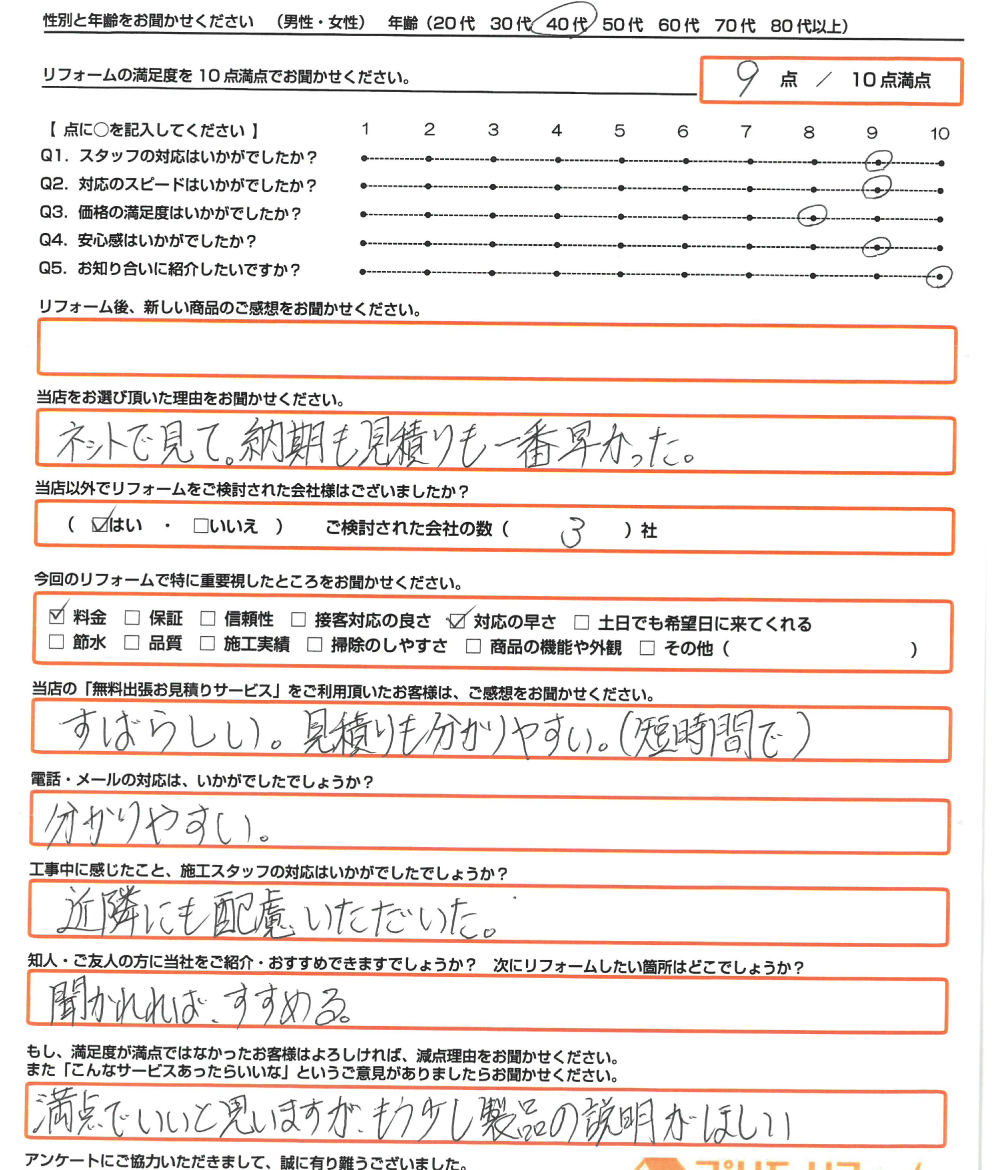 性別と年齢をお聞かせください （男性・女性） 年齢（20代 30代 40代 50代 60代 70代 80代以上）
リフォームの満足度を10点満点でお聞かせください。 9 点 ／ 10点満点
【 点に○を記入してください 】 1 2 3 4 5 6 7 8 9 10
Q1. スタッフの対応はいかがでしたか？
Q2. 対応のスピードはいかがでしたか？
Q3. 価格の満足度はいかがでしたか？
Q4. 安心感はいかがでしたか？
Q5. お知り合いに紹介したいですか？
リフォーム後、新しい商品のご感想をお聞かせください。
当店をお選び頂いた理由をお聞かせください。
ネットで見て。納期も見積りも一番早かった。
当店以外でリフォームをご検討された会社様はございましたか？
（ ☑はい ・ □いいえ ） ご検討された会社の数（ 3 ）社
今回のリフォームで特に重要視したところをお聞かせください。
☑ 料金 □ 保証 □ 信頼性 □ 接客対応の良さ ☑ 対応の早さ □ 土日でも希望日に来てくれる
□ 節水 □ 品質 □ 施工実績 □ 掃除のしやすさ □ 商品の機能や外観 □ その他（ ）
当店の「無料出張お見積りサービス」をご利用頂いたお客様は、ご感想をお聞かせください。
すばらしい。見積りも分かりやすい。（短時間で）
電話・メールの対応は、いかがでしたでしょうか？
分かりやすい。
工事中に感じたこと、施工スタッフの対応はいかがでしたでしょうか？
近隣にも配慮いただいた。
知人・ご友人の方に当社をご紹介・おすすめできますでしょうか？ 次にリフォームしたい箇所はどこでしょうか？
聞かれれば、すすめる。
もし、満足度が満点ではなかったお客様はよろしければ、減点理由をお聞かせください。
また「こんなサービスあったらいいな」というご意見がありましたらお聞かせください。
満点でいいと思いますが、もう少し製品の説明がほしい
アンケートにご協力いただきまして、誠に有り難うございました。